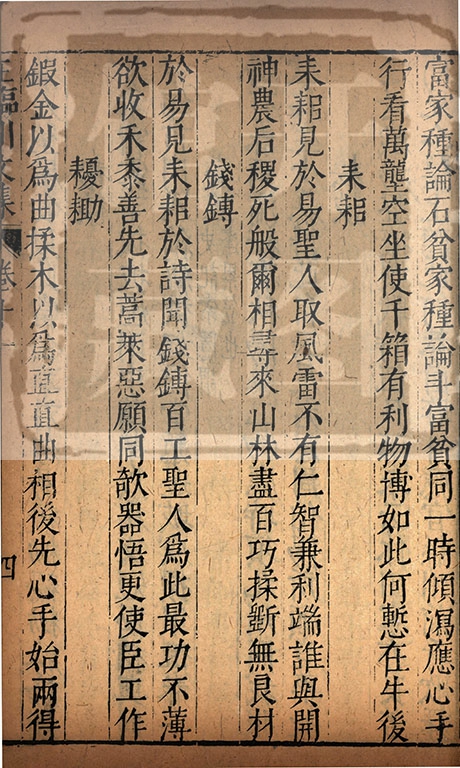 富家種論石貧家種論斗富貧同一時傾瀉應心手
行看萬壟空坐使千箱有利物博如此何慙在牛後
耒耜
耒耜見於易聖人取風雷不有仁智兼利端誰與開
神農后稷死般爾相尋來山林盡百巧揉斵無良材
錢鎛
於易見耒耜於詩聞錢鎛百工聖人爲此最功不薄
欲收禾黍善先去蒿萊惡願同欹器悟更使臣工作
耰耡
鍜金以爲曲揉木以爲直直曲相後先心手始兩得
王臨川文集 卷十一 四